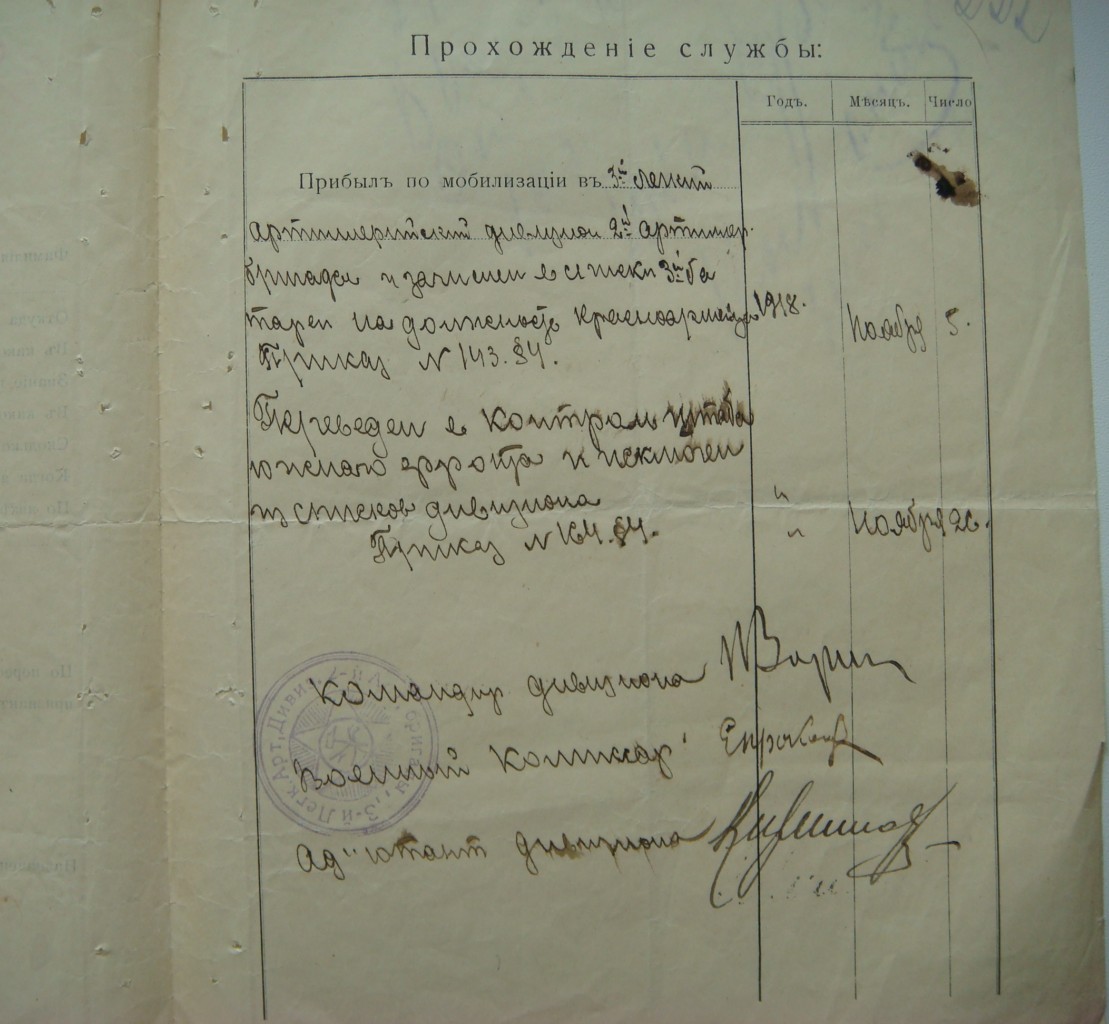 Прохожденіе службы:
Годъ. Мѣсяцъ. Число
Прибылъ по мобилизаціи въ 3й легкий
артиллерийский дивизион 2й артиллер.
бригады и зачислен в списки 3й ба
тареи на должность красноармейца 1918. Ноября 5.
Приказ N 143. §4.
Переведен в контроль штаба
южного фронта и исключен
из списков дивизиона
Приказ N 164. §4. " " Ноября 26.
Командир дивизиона
Военный Комиссар
Ад"ютант дивизиона
3-й Легк. Арт. Дивиз. 2-й